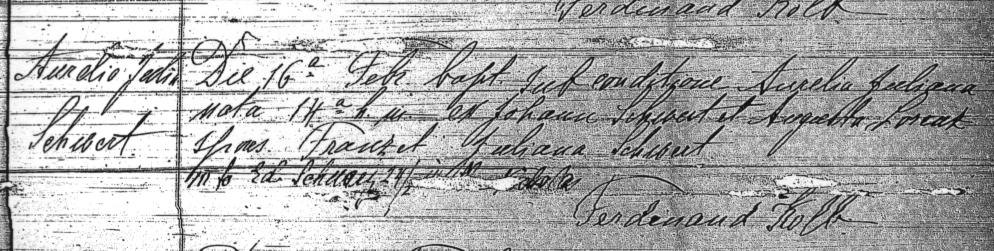 Ferdinand Kolb
Aurelia Julia Die 16ª Febr. bapt. sub conditione Aurelia Juliana
nata 14ª h. m. ex Johann Schwert et Augusta
Schwert spons. Franz et Juliana Schwert
Ferdinand Kolb